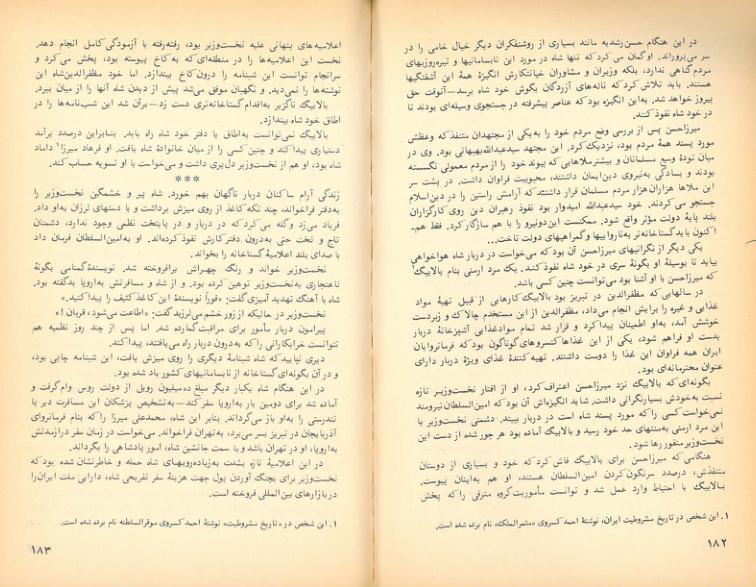 در این هنگام حسن‌رشدیه مانند بسیاری از روشنفکران دیگر خیال خامی را در
سر می‌پروراند. اوگمان می‌کرد که تنها شاه در مورد این نابسامانیها و تیره‌روزیهای
مردم‌گناهی ندارد، بلکه وزیران و مشاوران خیانتکارش انگیزهٔ همهٔ این آشفتگیها
هستند. باید تلاش‌کرد که ناله‌های آزردگان بگوش خود شاه برسد—آنوقت حق
پیروز خواهد شد. به‌این انگیزه بود که عناصر پیشرفته در جستجوی وسیله‌ای بودند تا
در خود شاه نفوذ کنند.
میرزاحسن پس از بررسی وضع مردم خود را به‌یکی از مجتهدان متنفذ که وعظش
مورد پسند همهٔ مردم بود، نزدیک‌کرد. این مجتهد سیدعبدالله بهبهانی بود. وی در
میان تودهٔ وسیع مسلمانان و بیشتر ملاهایی که پیوند خود را از مردم معمولی نگسسته
بودند و بسادگی به‌نیروی دین‌ایمان داشتند، محبوبیت فراوان داشت. در پشت سر
این ملاها هزاران هزار مردم مسلمان قرار داشتند که آرامش راستین را در دین‌اسلام
جستجو می‌کردند. خود سیدعبدالله امیدوار بود نفوذ رهبران دین روی کارگزاران
بلند پایهٔ دولت مؤثر واقع شود. ممکنست این‌دونیرو را با هم سازگار کرد. فقط هم‌
اکنون باید گستاخانه‌تر به‌نارواییها و گمراهیهای دولت تاخت...
یکی دیگر از نگرانیهای میرزاحسن آن بود که می‌خواست در دربار شاه هواخواهی
بیابد تا بوسیلهٔ او بگونهٔ سری در خود شاه نفوذ کنند. یک مرد ارمنی بنام بالابیگ
که میرزاحسن با او آشنا بود می‌توانست چنین کسی باشد.
در سالهایی که مظفرالدین در تبریز بود بالابیگ کارهایی از قبیل تهیهٔ مواد
غذایی و غیره را برایش انجام می‌داد، مظفرالدین از این مستخدم چالاک و زبردست
خوشش آمد، به‌او اطمینان پیدا کرد و قرار شد تمام موادغذایی آشپزخانهٔ دربار
بدست او فراهم شود، یکی از این غذاها کنسروهای گوناگون بود که فرمانروایان
ایران همه فراوان این غذا را دوست داشتند. تهیه‌کنندهٔ غذای ویژهٔ دربار دارای
عنوان محترمانه‌ای بود.
بگونه‌ای که بالابیگ نزد میرزاحسن اعتراف‌کرد، او از رفتار نخست‌وزیر تازه
نسبت به‌خودش بسیار نگرانی داشت. شاید انگیزه‌اش آن بود که امین‌السلطان نیرومند
نمی‌خواست کسی را که مورد پسند شاه است در دربار ببیند. دشمنی نخست‌وزیر با
این مرد ارمنی به‌منتهای حد خود رسید و بالابیگ آماده بود هر جور شده از دست این
نخست‌وزیر منفور رها شود.
هنگامی که میرزاحسن برای بالابیگ فاش کرد که خود و بسیاری از دوستان
متنفذش، درصدد سرنگون‌کردن امین‌السلطان هستند، او هم به‌اینان پیوست.
بالابیگ با احتیاط وارد عمل شد و توانست مأموریت گروه مترقی را که پخش
۱. این شخص در «تاریخ مشروطیت ایران»، نوشتهٔ احمد کسروی «مشیرالملک» نام برده شده است.
۱۸۲
اعلامیه‌های پنهانی علیه نخست‌وزیر بود، رفته‌رفته با آزمودگی‌کامل انجام دهد.
نخست این اعلامیه‌ها را در منطقه‌ای که به‌کاخ پیوسته بود، پخش می‌کرد و
سرانجام توانست این شبنامه را درون‌کاخ بیندازد. اما خود مظفرالدین‌شاه این
نوشته‌ها را نمی‌دید. و نگهبان موفق می‌شد پیش از دیدن شاه آنها را از میان ببرد.
بالابیگ ناگزیر به‌اقدام گستاخانه‌تری دست زد—برآن شد این شب‌نامه‌ها را در
اطاق خود شاه بیندازد.
بالابیگ نمی‌توانست به‌اطاق یا دفتر خود شاه راه یابد. بنابراین درصدد برآمد
دستیاری پیدا کند و چنین کسی را از میان خانوادهٔ شاه یافت. او فرهاد میرزا۱ داماد
شاه بود، او هم از نخست‌وزیر دل‌پری داشت و می‌خواست با او تسویه حساب کند.
***
زندگی آرام ساکنان دربار ناگهان بهم خورد. شاه پیر و خشمگین نخست‌وزیر را
به‌دفتر فراخواند، چند تکه کاغذ از روی میزش برداشت و با دستهای لرزان به‌او داد.
فریاد می‌زد و گله می‌کرد که در دربار و در پایتخت نظمی وجود ندارد، دشمنان
تاج و تخت حتی به‌درون دفتر کارش نفوذ کرده‌اند. او به‌امین‌السلطان فرمان داد
با صدای بلند اعلامیهٔ گستاخانه را بخواند.
نخست‌وزیر خواند و رنگ چهراش برافروخته شد. نویسندهٔ گمنامی بگونهٔ
ناهنجاری به‌نخست‌وزیر توهین کرده بود. و از شاه و مسافرتش به‌اروپا بدگفته بود.
شاه با آهنگ تهدید آمیزی گفت: «فوراً نویسندهٔ این کاغذ کثیف را پیدا کنید.»
نخست‌وزیر در حالیکه از زور خشم می‌لرزید گفت: «اطاعت می‌شود، قربان!»
پیرامون دربار مأمور برای مراقبت گمارده شد. اما پس از چند روز نظمیه هم
نتوانست خرابکارانی را که به‌درون دربار راه می‌یافتند، پیدا کند.
دیری نپایید که شاه شبنامهٔ دیگری را روی میزش یافت، این شبنامه چاپی بود،
و در آن بگونه‌ای گستاخانه از نابسامانیهای کشور یاد شده بود.
در این هنگام شاه یکبار دیگر مبلغ ده‌میلیون روبل از دولت روس وام‌گرفت و
آماده شد برای دومین بار به‌اروپا سفر کند—به‌تشخیص پزشکان این مسافرت دیر یا
تندرستی را به‌او باز می‌گرداند. بنابر این شاه، محمدعلی میرزا که بنام فرمانروای
آذربایجان در تبریز بسر می‌برد، به‌تهران فراخواند. می‌خواست در زمان سفر درازمدتش
به‌اروپا، او در تهران باشد و با سمت جانشین شاه، امور پادشاهی را بگرداند.
در این اعلامیهٔ تازه بشدت به‌زیاده‌رویهای شاه حمله و خاطرنشان شده بود که
نخست‌وزیر برای بچنگ آوردن پول جهت هزینهٔ سفر تفریحی شاه، دارایی ملت ایران را
در بازارهای بین‌المللی فروخته است.
۱. این شخص در «تاریخ مشروطیت»، نوشتهٔ احمد کسروی موقرالسلطنه نام برده شده است.
۱۸۳